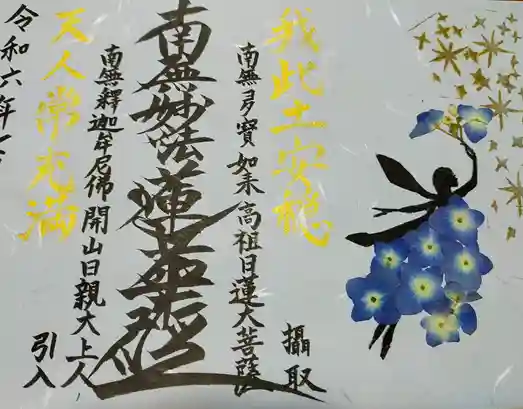 我此土安穏
南無多寳如来 高祖日蓮大菩薩 攝取
南無妙法蓮華経
南無釋迦牟尼佛 開山日親大上人 引入
天人常充満
令和六年